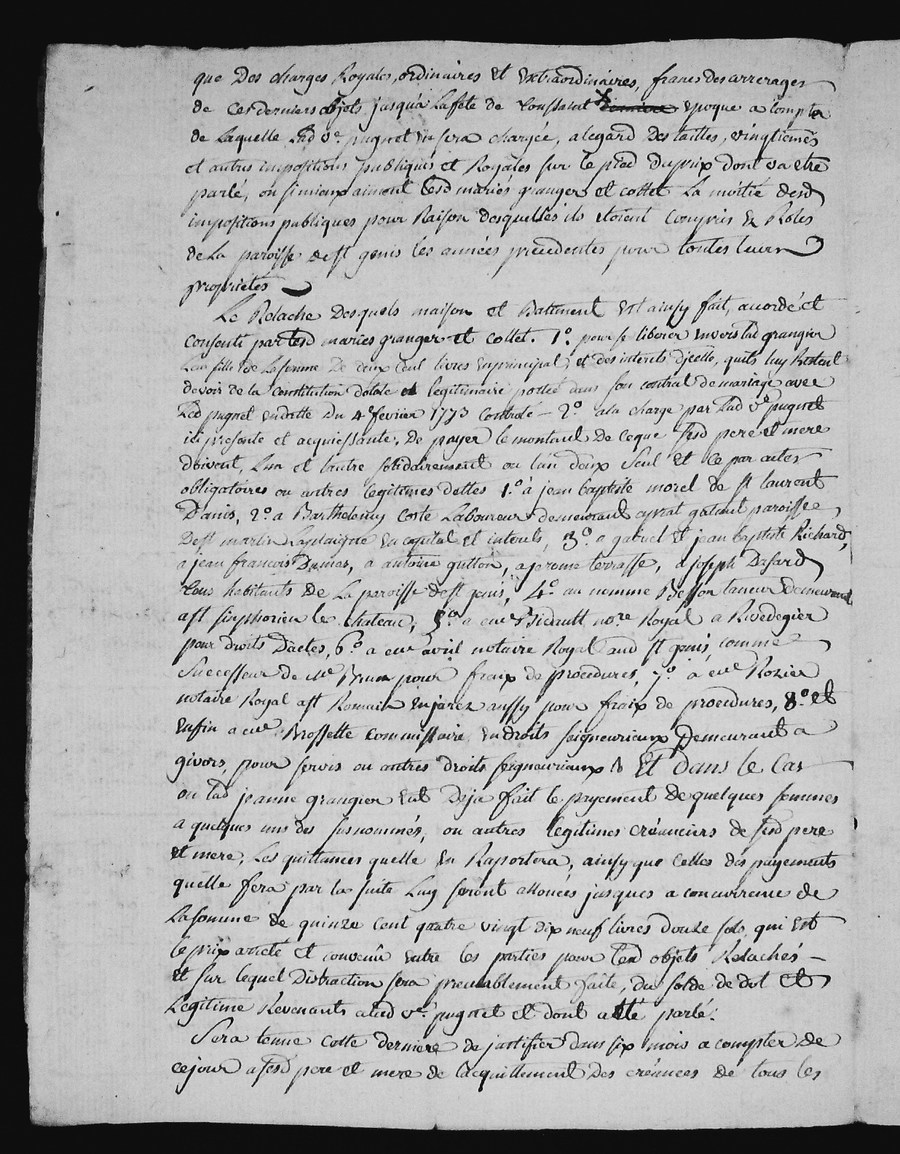 que Des charges Royales, ordinaires et Extraordinaires, francs des arrerages
de ces derniers objets jusqu'a La fete de toussaint Epoque a Compter
de Laquelle Lad ve. pugnet en sera chargée, a legard Des tailles, vingtiemes
et autres impositions publiques et Royales sur le pied Du prix dont va etre
parlé, ou si mieux aiment lesd mariés granger et collet La moitié desd
impositions publiques pour Raison desquelles ils etoient Compris Ex Roles
de La paroisse de st genis les années precedentes pour toutes leurs
proprietés
Le Relache Desquels maison et Batiment est ainsy fait, accordé et
Consenti par lesd mariés granger et collet. 1o. pour se liberer envers lad grangier
Leur fille De La somme De deux Cent livres en principal, et des interets d'icelle, quils luy Restent
devoir de la Constitution dotale et legitimaire portée dans son contrat de mariage avec
Led pugnet en datte Du 4e fevrier 1773 Controlé - 2o. a la charge par Lad ve. pugnet
ici presente et acquiessante, De payer le montant De ceque sesd pere et mere
doivent, Lun et lautre solidairement ou lun deux Seul Et Ce par actes
obligatoires ou autres legitimes dettes 1o. à jean baptiste morel de st laurent
Danis, 2o. a Barthelemy Coste Laboureur demeurant paroisse
De st martin Laplaigne en capital et interets, 3o. a gabriel et jean baptiste Richard,
à jean francois Dumas, a antoine gutton, a jerome terrasse, a joseph
tous habitants de La paroisse de st genis, 4o. au nommé Besson taneur demeurant
a st simphorien le chateau, 5o. a me. Bidault nore Royal a Rivedegier
pour droits Dactes, 6o. a me avril notaire Royal aud st genis, comme
Successeur de Me Brun pour fraix de procedures, 7o. a me Rozier
notaire Royal a st Romain en jarez aussy pour fraix de procedures, 8o. et
enfin a me Brossette commissaire en droits seigneuriaux Demeurant a
givors, pour servis ou autres droits seigneuriaux & Et dans le Cas
ou lad jeanne grangier eut Deja fait le payement de quelques sommes
a quelques uns des susnommés, ou autres legitimes créanciers de sesd pere
et mere, Les quittances quelle en Raportera, ainsy que celles des payements
quelle fera par la suite Luy seront allouées jusques a concurrence de
La somme de quinze cent quatre vingt dix neuf livres douze sols, qui est
le prix arreté et convenu entre les parties pour lesd objets Relachés -
et sur lequel Distraction sera prealablement faite, du solde de dot et
Legitime Revenants a lad ve. pugnet et dont a eté parlé.
Sera tenue cette derniere de justifier dans six mois a compter de
ce jour a sesd pere et mere de l'acquittement des creances de tous les